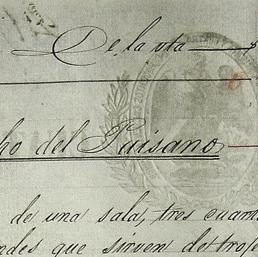 De la vta
ho del Paisano
de una sala, tres cuar
ndes que sirven de trope